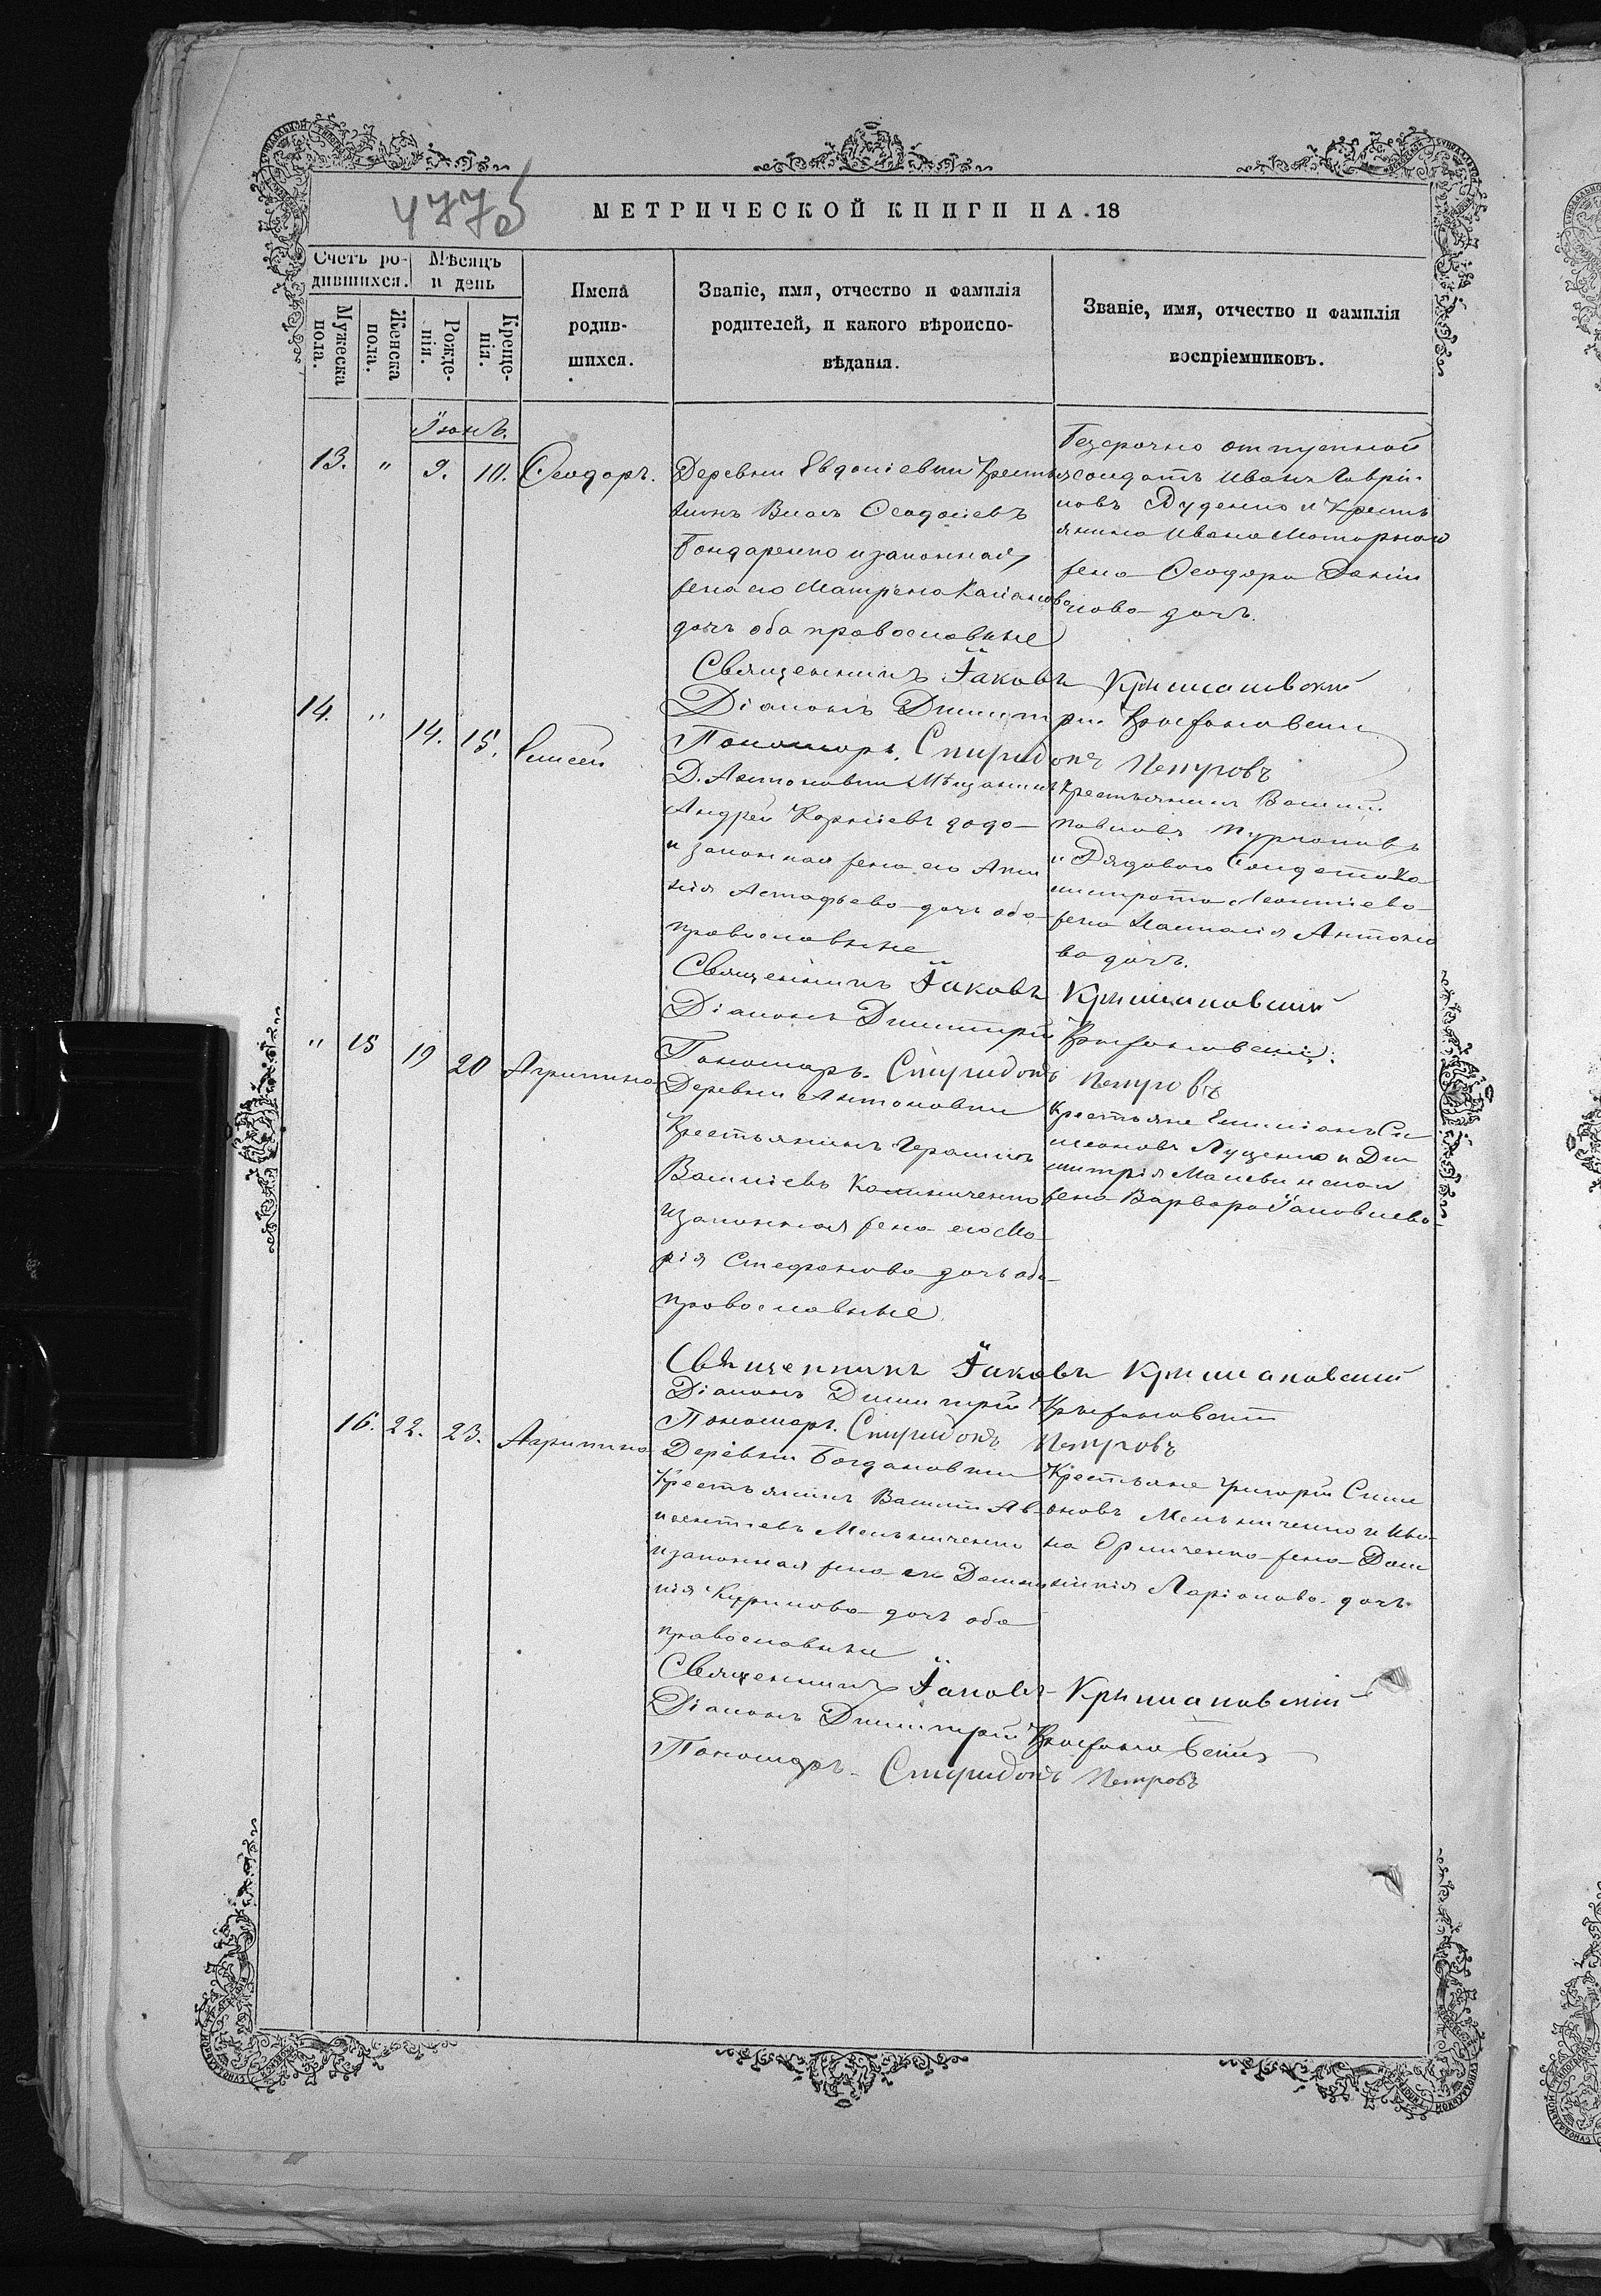 477б
МЕТРИЧЕСКОЙ КНИГИ НА 18
Счетъ ро-
дившихся.
Мѣсяцъ
и день
Мужеска
пола.
Женска
пола.
Рожде-
нія.
Креще-
нія.
Имена
родив-
шихся.
Званіе, имя, отчество и фамилія
родителей, и какого вѣроиспо-
вѣданія.
Званіе, имя, отчество и фамилія
воспріемниковъ.
Іюнь.
13. " 9. 10. Ѳеодоръ.
Деревни Евдокіевки Кресть
янинъ Власъ Ѳеодосіевъ
Бондаренко и законная
жена его Матрена Касіанова
дочь оба православные
Безсрочно отпускной
солдатъ Иванъ Гаврі-
ловъ Дуденко и кресть
янина Ивана Моторнаго
жена Ѳеодора Даніи
лова дочь.
Священникъ Іаковъ Крышановскій
Діаконъ Димитрій
Пономарь Спиридонъ Петровъ
14. " 14. 15. Елисей
Д. Антоновки Мѣщанинъ
Андрей Корніевъ
и законная жена его
Астафьева дочь оба
православные
Крестьянинъ Василій
Павловъ
и Рядоваго Солдата
жена Наталія Антоно
ва дочь.
Священникъ Іаковъ Крышановскій
Діаконъ Димитрій
Пономарь Спиридонъ Петровъ
" 15 19 20 Агрипина
Деревни Антоновки
Крестьянинъ Герасимъ
Василіевъ
и законная жена его Ма
рія Стефанова дочь оба
православные
Крестьяне Емиліанъ Си
меоновъ Луценко и Ди
митрія
жена Варвара Іаковлева
Священникъ Іаковъ Крышановскій
Діаконъ Димитрій
Пономарь Спиридонъ Петровъ
16. 22. 23. Агрипина
Деревни Богдановки
Крестьянинъ Василій Ав
ксентіевъ Мельниченко
и законная жена его Домни
кія Кирилова дочь оба
православные
Крестьяне Григорій Симе
оновъ Мельниченко и Ива
на Ермиченко жена Дом
никія Ларіонова дочь
Священникъ Іаковъ Крышановскій
Діаконъ Димитрій
Пономарь Спиридонъ Петровъ